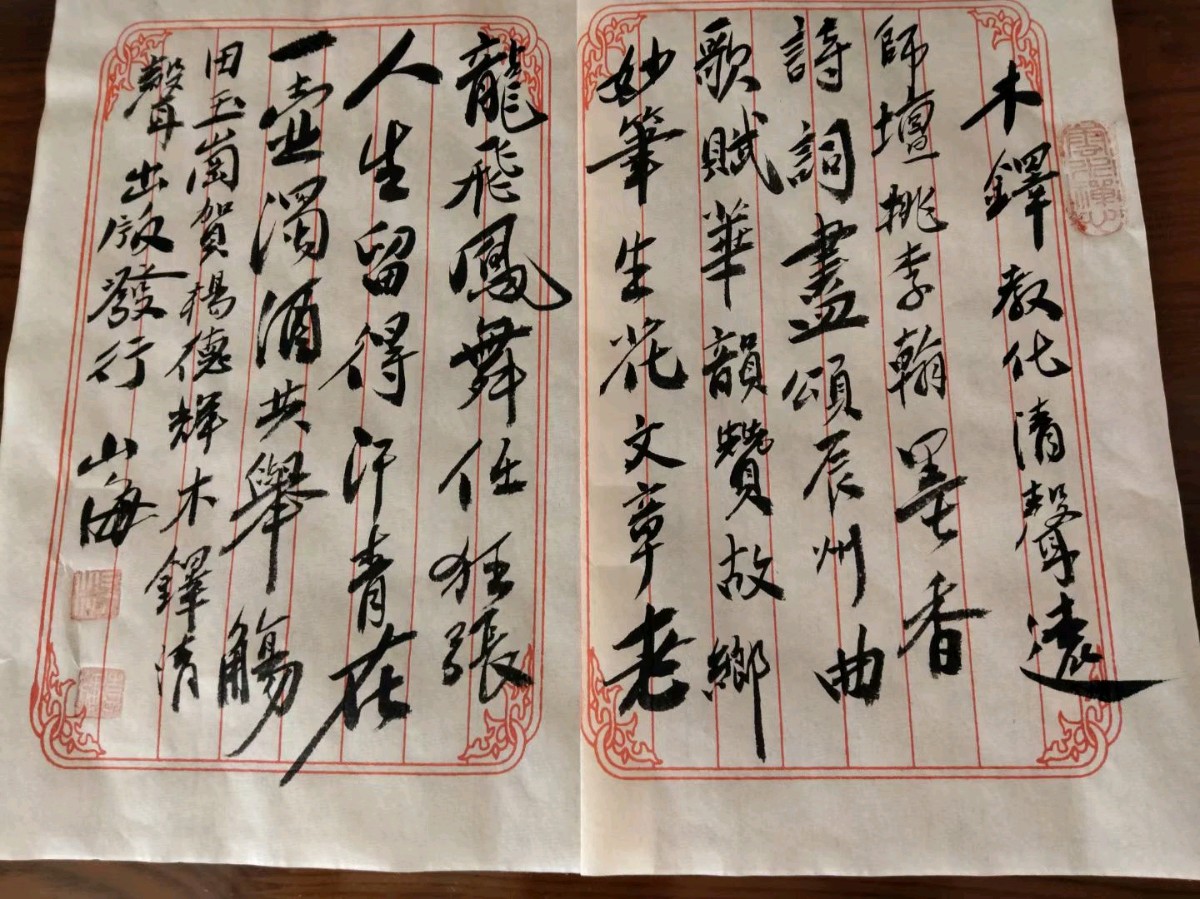 木鐸教化清聲遠
師壇桃李翰墨香
詩詞盡頌辰州曲
歌賦華韻贊故鄉
妙筆生花文章老
龍飛鳳舞任狂張
人生留得汗青在
一壺濁酒共舉觴
田玉崗賀楊德輝木鐸清
聲出版發行 山海